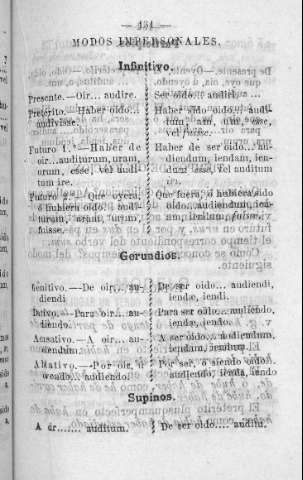 — 151 —
MODOS IMPERSONALES.
Infinitivo.
Presente.—Oir... audire. Ser oido... audiri
Pretérito.—Haber oido... Haber sido oido... audi-
audivisse. tum, am, um, esse,
vel fuisse.
Futuro 1.°—Haber de Haber de ser oido... au-
oir...auditurum, uram, diendum, iendam, ien-
urum, esse, vel audi- dum esse, vel auditum
tum ire. iri.
Futuro 2.°—Que oyera, Que fuera, ó hubiera sido
ó hubiera oido. audi- oido...audiendum, ien-
turum, uram, urum, am, iendum fuisse.
fuisse.
Gerundios.
Genitivo.—De oir... au- De ser oido... audiendi,
diendi iendæ, iendi.
Dativo.—Para oir... au- Para ser oido... audiendo,
diendo. iendæ, iendo.
Acusativo.—A oir... au- A ser oido... audiendum,
diendum. iendam, iendum.
Ablativo.—Por oir, ó Por ser, ó siendo oido
audiendo. audiendo, ienda, iendo
Supinos.
A oir....... auditum. De ser oido.... auditu.